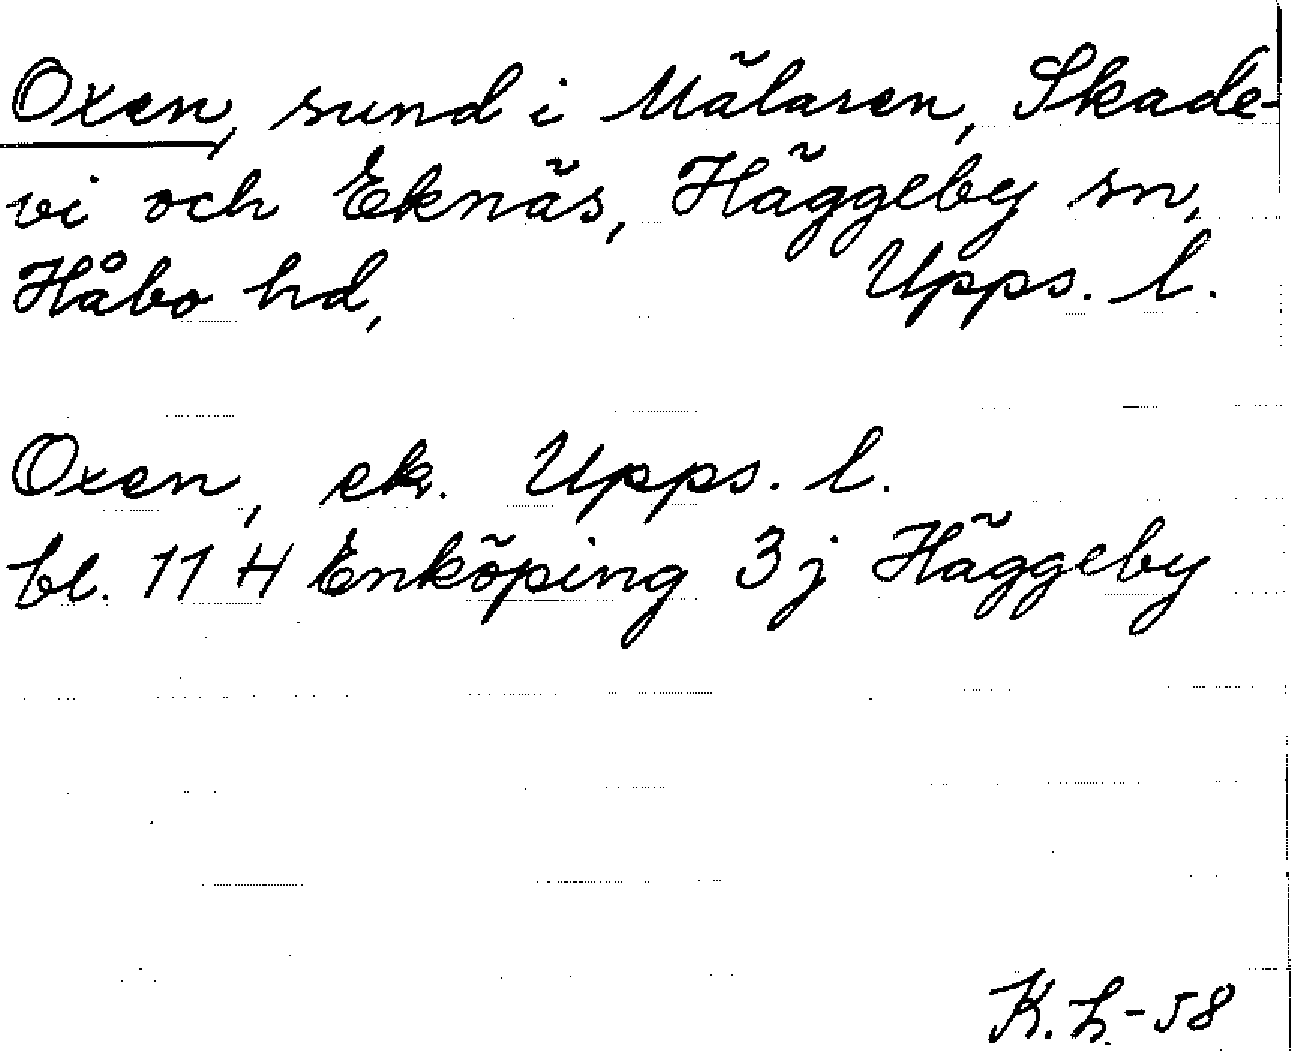 Oxen, sund i Mälaren, Skade-
vi och Eknäs, Häggeby sn,
Håbo hd, Upps. l.
Oxen, ek. Upps. l.
bl. 11 H Enköping 3j Häggeby
K. L-58